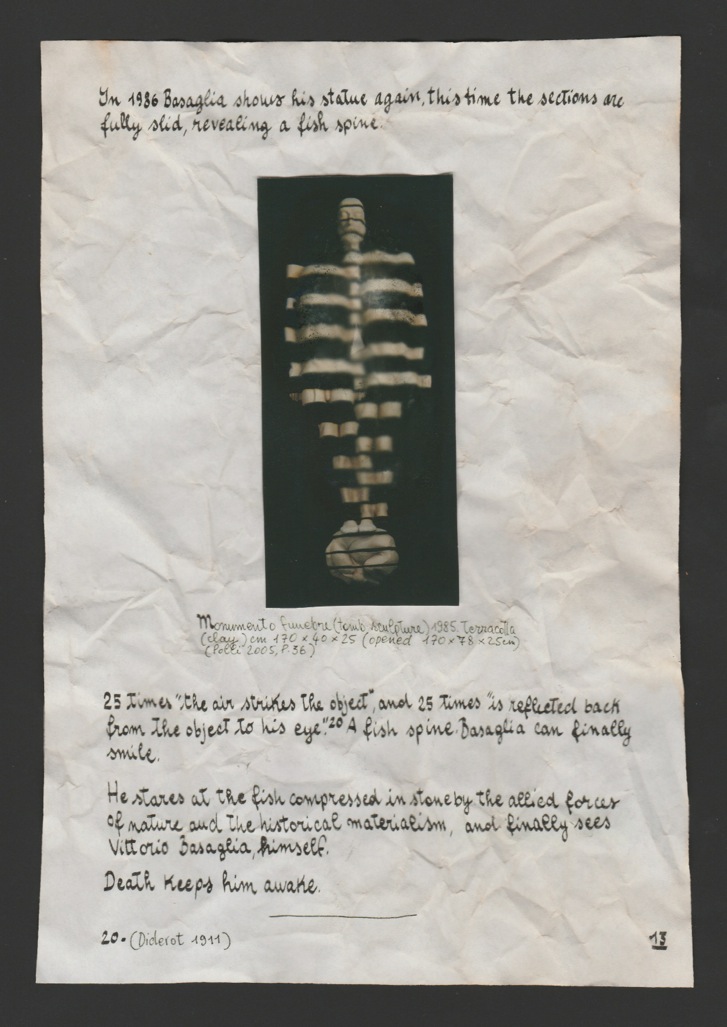 In 1986 Basaglia shows his statue again, this time the sections are
fully slid, revealing a fish spine.
Monumento funebre (tomb sculpture) 1985. Terracotta
(clay) cm 170 x 40 x 25 (opened 170 x 78 x 25 cm)
(Polli 2005, P. 36)
25 times "the air strikes the object", and 25 times "is reflected back
from the object to his eye".20 A fish spine. Basaglia can finally
smile.
He stares at the fish compressed in stone by the allied forces
of nature and the historical materialism, and finally sees
Vittorio Basaglia, himself.
Death keeps him awake.
20. (Diderot 1911)
13